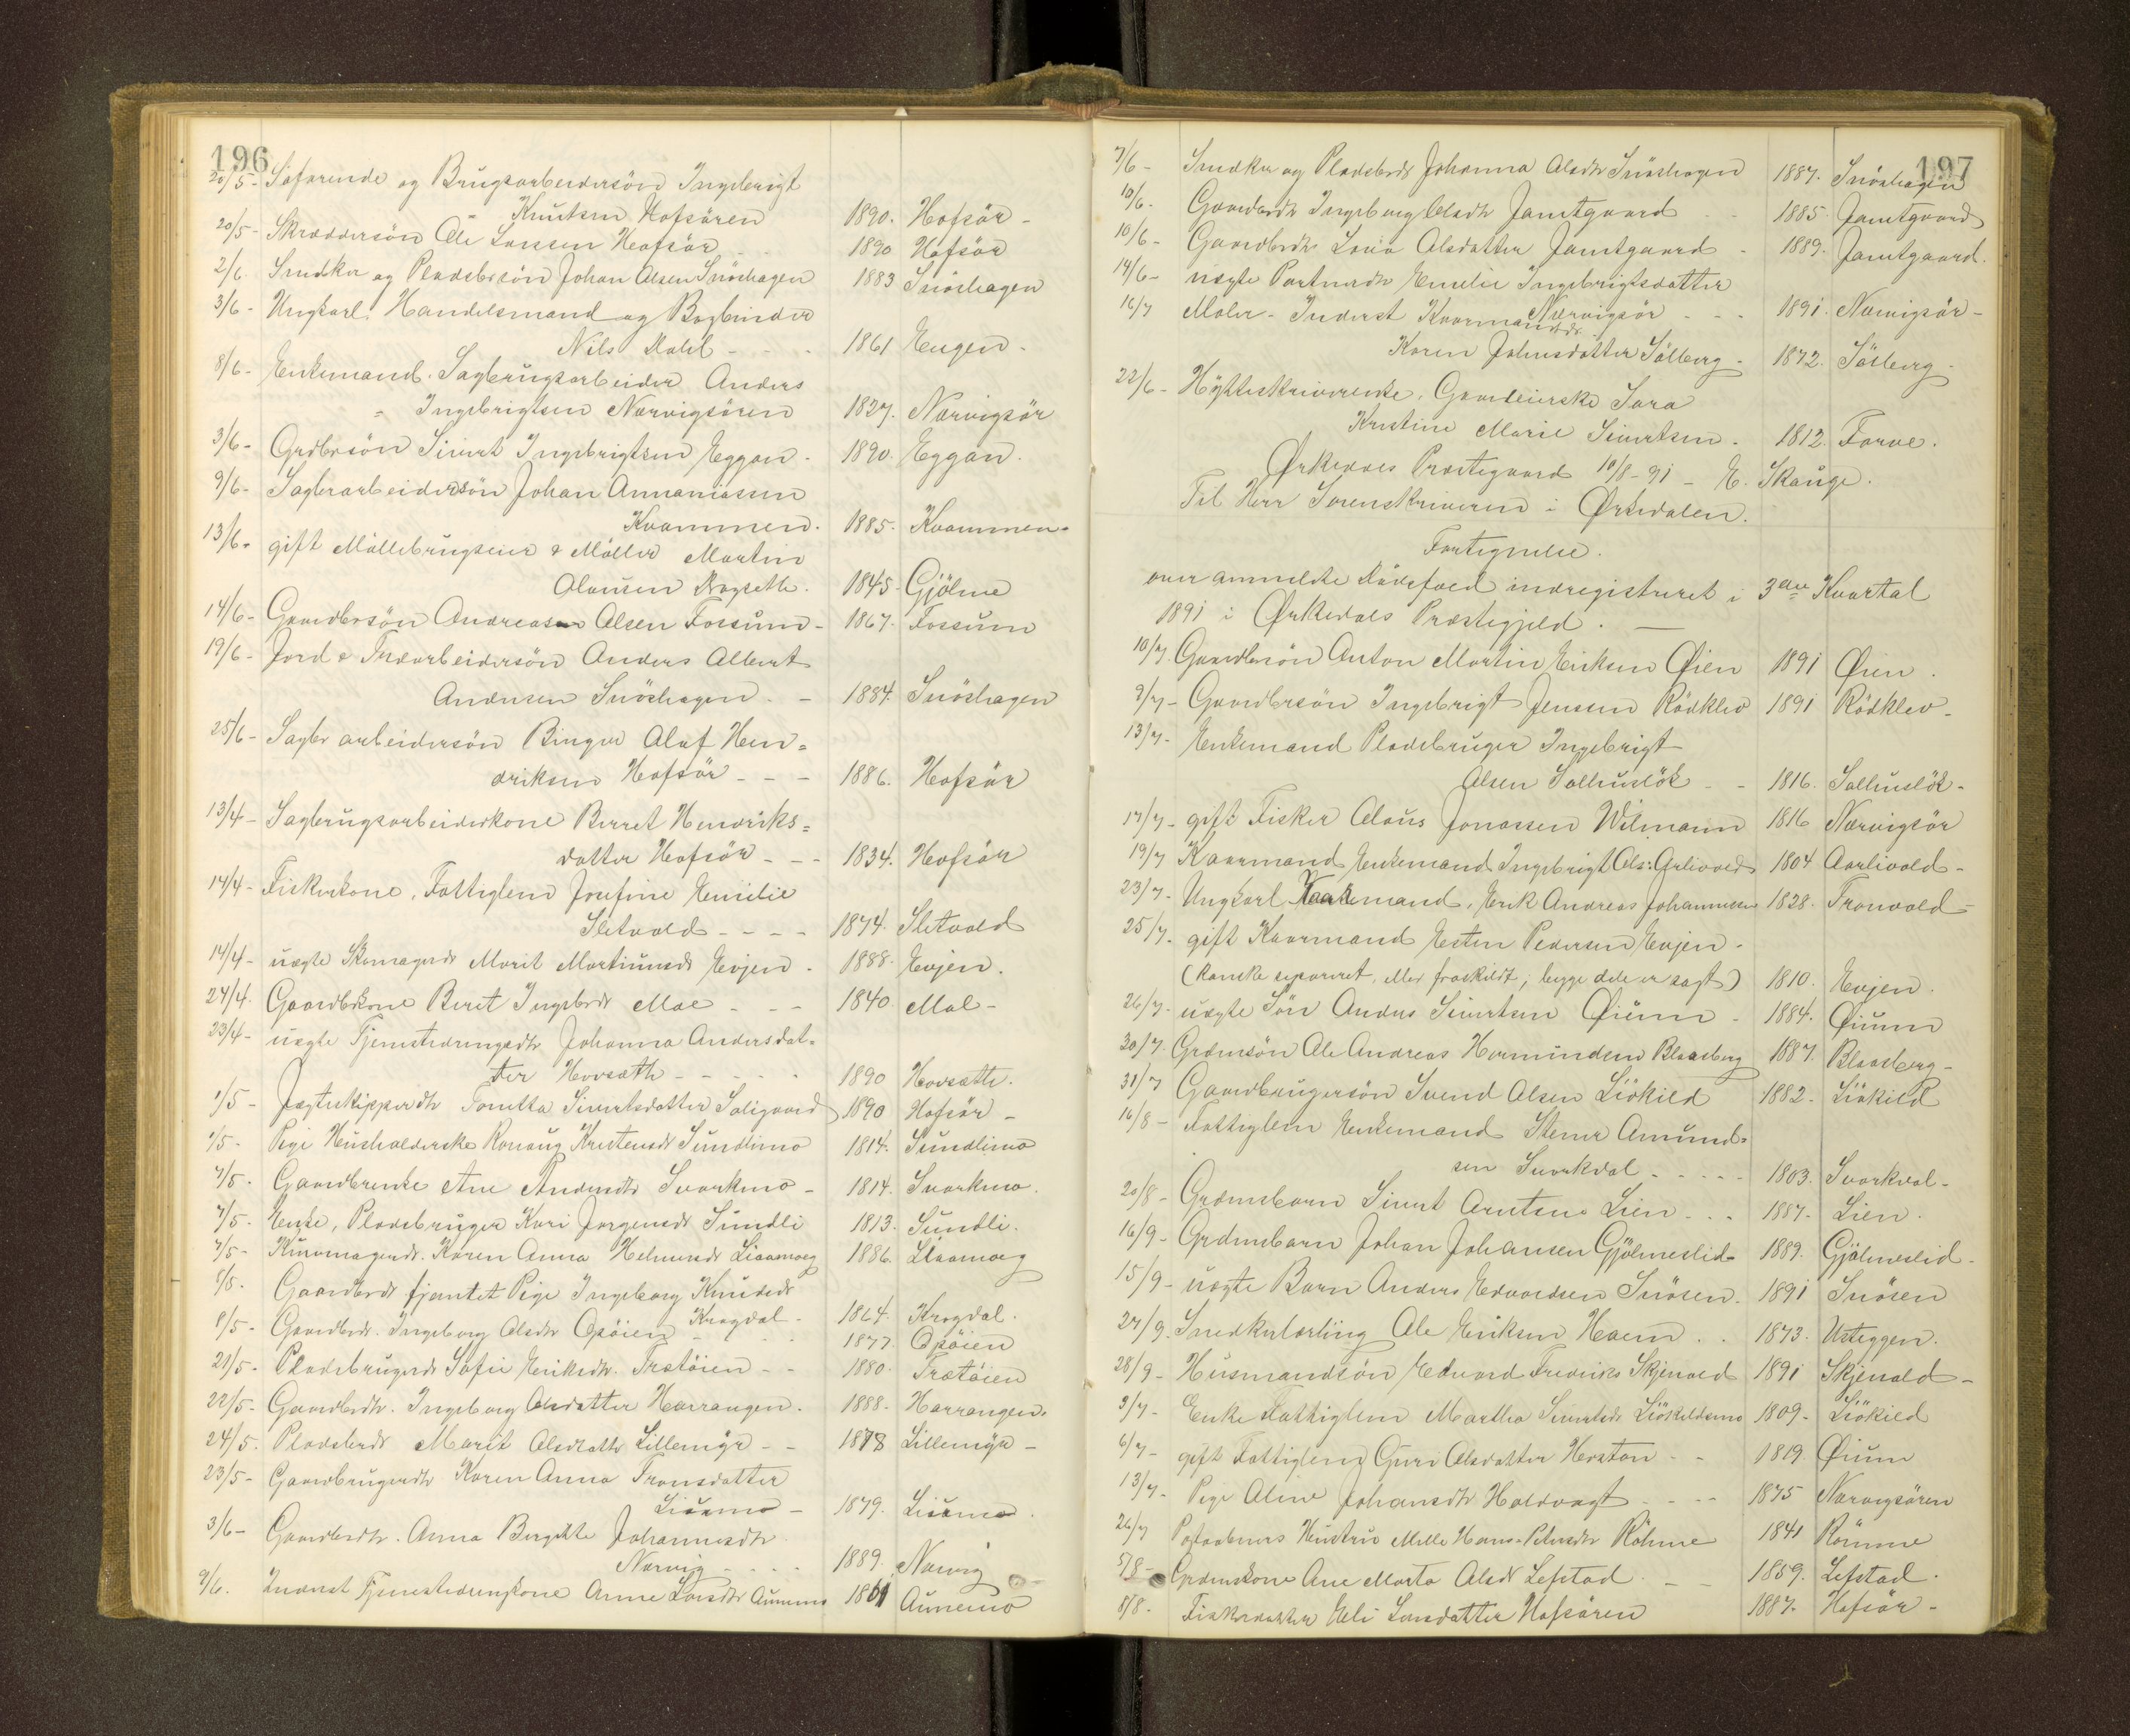 196
20/5 - Søfarende og Brugsarbeidersøn Ingebrigt
Knutsen Hofsøren 1890. Hofsør -
20/5 - Skræddersøn Ole Larssen Hofsør 1890 Hofsør
2/6. Snedker og Pladsbrsøn Johan Olsen Snöshagen 1883 Snöshagen
3/6 - Ungkarl. Handelsmand og Bogbinder
Nils Dahl - - . 1861 Engen -
8/6 - Enkemand. Sagbrugsarbeider Anders
= Ingebrigtsen Nærvigsören 1827. Nærvigsör
3/6 - Grdbrsön Sivert Ingebrigtsen Eggan - 1890. Eggan.
9/6 - Sagbrarbeidersön Johan Annaniassen
Kvammen. 1885. Kvammen -
13/6 - gift Möllebrugseier & Möller Martin
Olausen Bagseth. 1845 - Gjölme
14/6 - Gaardbrsön Andreas Olsen Fossum - 1867. Fossum
19/6 - Jord & Træarbeidersön Anders Albert
Andersen Snöshagen - - 1884. Snöshagen
25/6 - Sagbr arbeidersön Birger Olaf Hen=
driksen Hofsör - - - 1886. Hofsör
13/4 - Sagbrugsarbeiderkone Berret Hendriks=
datter Hofsör - - - 1834. Hofsör
14/4 - Fiskerkone. Fattiglem Josefine Emilie
Sletvold - - - - 1874. Sletvold
14/4 - uægte Skomagerdr Marit Martinusdr Evjen - 1888. Evjen.
24/4. Gaardbrkone Beret Ingebrdr Moe - - - 1840. Moe -
23/4 - uægte Tjenestedrengsdtr Johanna Andersdat=
ter Hovsæth - - - - - 1890 Hovsæth.
1/5 - Jagteskipperdtr Tonetta Sivertsdatter Soligaard 1890 Hofsör -
1/5 - Pige Husholderske Ronaug Kristensdr Sundlimo 1814. Sundlimo
7/5 - Gaardbrenke Ane Andersdtr Svorkmo - 1814. Svorkmo.
7/5 - Enke, Pladsbruger Kari Jørgensdr Sundli 1813. Sundli.
7/5 - Karen Anna Helmersdr Lisamoeg 1886. Lisamoeg
8/5. Gaardbrdr fjantet Pige Ingeborg Knudsdr
Krogdal - 1864. Krogdal.
8/5 - Gaardbrdr. Ingeborg Olsdtr Opöien - 1877 Opöien
21/5 - Pladsbrugerdr Sofie Eriksdtr. Trætöien - - 1880 - Trætöien
22/5 - Gaardbrdtr. Ingeborg Olsdatter Harrangen. 1888 - Harrangen.
24/5. Pladsbrdr Marit Olsdatter Lillemyr - - 1878 Lillemyr -
23/5 - Gaardbrugerdtr Karen Anna Tronsdatter
Lisamo - 1879. Lisamo.
3/6 - Gaardbrdtr. Anna Birgitte Johannesdtr
Nærvig - - - - 1889. Nærvig
9/6. Inderst Tjenestedrengkone Anne Larsdtr Aunemo 1861 Aunemo
197
7/6 - Snedker og Pladsbrdr Johanna Olsdtr Snöshagen 1887. Snöshagen
10/6 - Gaardbrdtr Ingeborg Olsdtr Jamtgaard - - 1885. Jamtgaard
10/6 - Gaardbrdtr Lovia Olsdatter Jamtgaard - 1889. Jamtgaard.
14/6 - uægte Emelie Ingebrigtsdatter
Nærvigsör - - - 1891. Nærvigsör -
16/7 Maler - Inderst Kaarmandsdr
Karen Johnsdatter Sölberg - 1872. Sölberg -
22/6 - Hytteskriverenke, Gaardeierske Sara
Kristine Marie Sivertsen. - 1812. Forve.
Ørkedals Præstegaard 10/8 - 91 - E. Skauge.
Til Herr Sorenskriveren i Ørkedalen.
Fortegnelse.
over anmeldte Dödsfald indregistreret i 3die Kvartal
1891 i Ørkedals Præstegjeld. -
10/7 Gaardbrsön Anton Martin Eriksen Øien 1891 Øien.
9/7 - Gaardbrsön Ingebrigt Jenssen Rödklev 1891 Rödklev -
13/7 - Enkemand Pladsbruger Ingebrigt
Olsen Solhuslök - - 1816. Solhuslök -
17/7 - gift Fisker Olaus Jonassen Wilmann 1816 Nærvigsör
19/7 Kaarmand Enkemand Ingebrigt Ols: Aarlivold 1804 Aarlivold -
23/7 - Ungkarl Kaarmand, Erik Andreas Johannessen 1828. Tronvold -
25/7 - gift Kaarmand Esten Pedersen Evjen -
(Kanske separeret, eller fraskildt; begge dele er sagt) 1810. Evjen.
26/7 - uægte Sön Anders Sivertsen Øium - 1884. Øium
30/7. Grdmsön Ole Andreas Hermundsen Blaasberg 1887. Blaasberg -
31/7 Gaardbrugersön Svend Olsen Liökild 1882. Liökild
16/8 - Fattiglem Enkemand Amund=
sen Svorkdal - - - - - 1803. Svorkdal -
20/8 - Grdmsbarn Sivert Arntsen Lien - - - 1887. Lien.
16/9 - Grdmsbarn Johan Johansen Gjölmeslid - 1889. Gjölmeslid -
15/9 - uægte Barn Anders Edvardsen Snösen. 1891 Snösen
27/9. Snedkerlærling Ole Eriksen Hoem - . 1873. Usteggen.
28/9 - Husmandsön Edvard Fredriks Skjenald 1891 Skjenald -
3/7 - Enke Fattiglem Martha Sivertsdr Liökildsmo 1809 - Liökild
6/7 - gift Fattiglem Guri Olsdatter Herston - - 1819. Øium
13/7 - Pige Aline Johansdtr Holdvagt - - - - 1875 Nærvigsören
26/7 Postaabners Hustru Mille Hans-Petersdtr Röhme 1841 Römme
5/8 - Grdmskone Ane Marta Olsdr Lefstad. - - 1859. Lefstad.
8/8 - Fiskerdatter Eli Larsdatter Hofsören 1887. Hofsör -